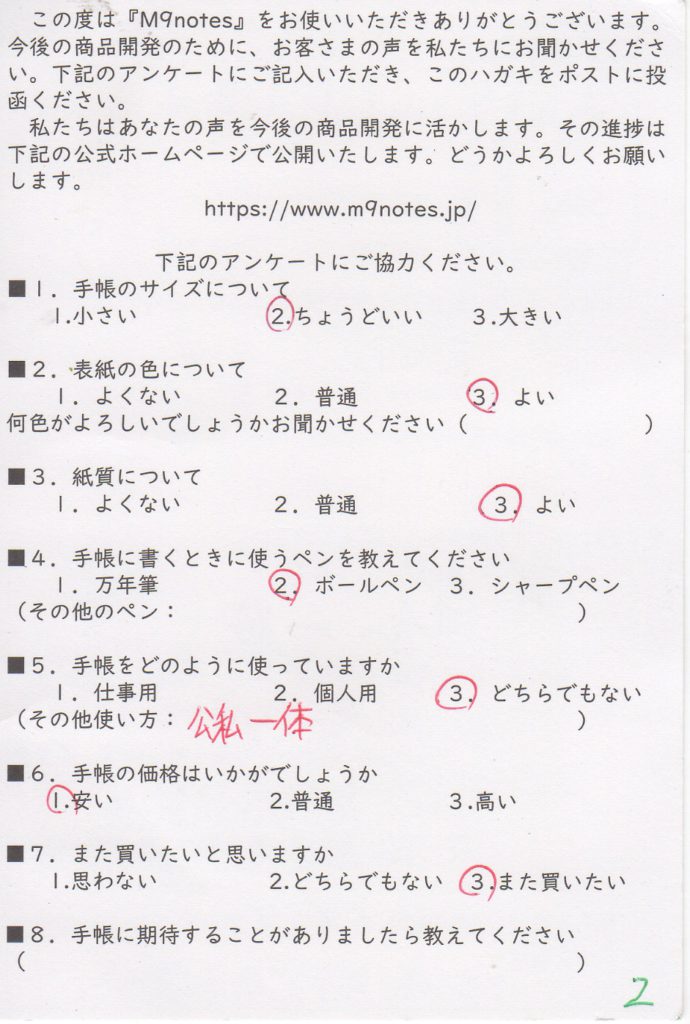 この度は『M9notes』をお使いいただきありがとうございます。
今後の商品開発のために、お客さまの声を私たちにお聞かせくださ
い。下記のアンケートにご記入いただき、このハガキをポストに投
函ください。
私たちはあなたの声を今後の商品開発に活かします。その進捗は
下記の公式ホームページで公開いたします。どうかよろしくお願い
します。
https://www.m9notes.jp/
下記のアンケートにご協力ください。
■1．手帳のサイズについて
1.小さい 2.ちょうどいい 3.大きい
■2．表紙の色について
1．よくない 2．普通 3．よい
何色がよろしいでしょうかお聞かせください（ ）
■3．紙質について
1．よくない 2．普通 3．よい
■4．手帳に書くときに使うペンを教えてください
1．万年筆 2．ボールペン 3．シャープペン
（その他のペン： ）
■5．手帳をどのように使っていますか
1．仕事用 2．個人用 3．どちらでもない
（その他使い方：公私一体 ）
■6．手帳の価格はいかがでしょうか
1.安い 2.普通 3.高い
■7．また買いたいと思いますか
1.思わない 2.どちらでもない 3.また買いたい
■8．手帳に期待することがありましたら教えてください
（ ）
2